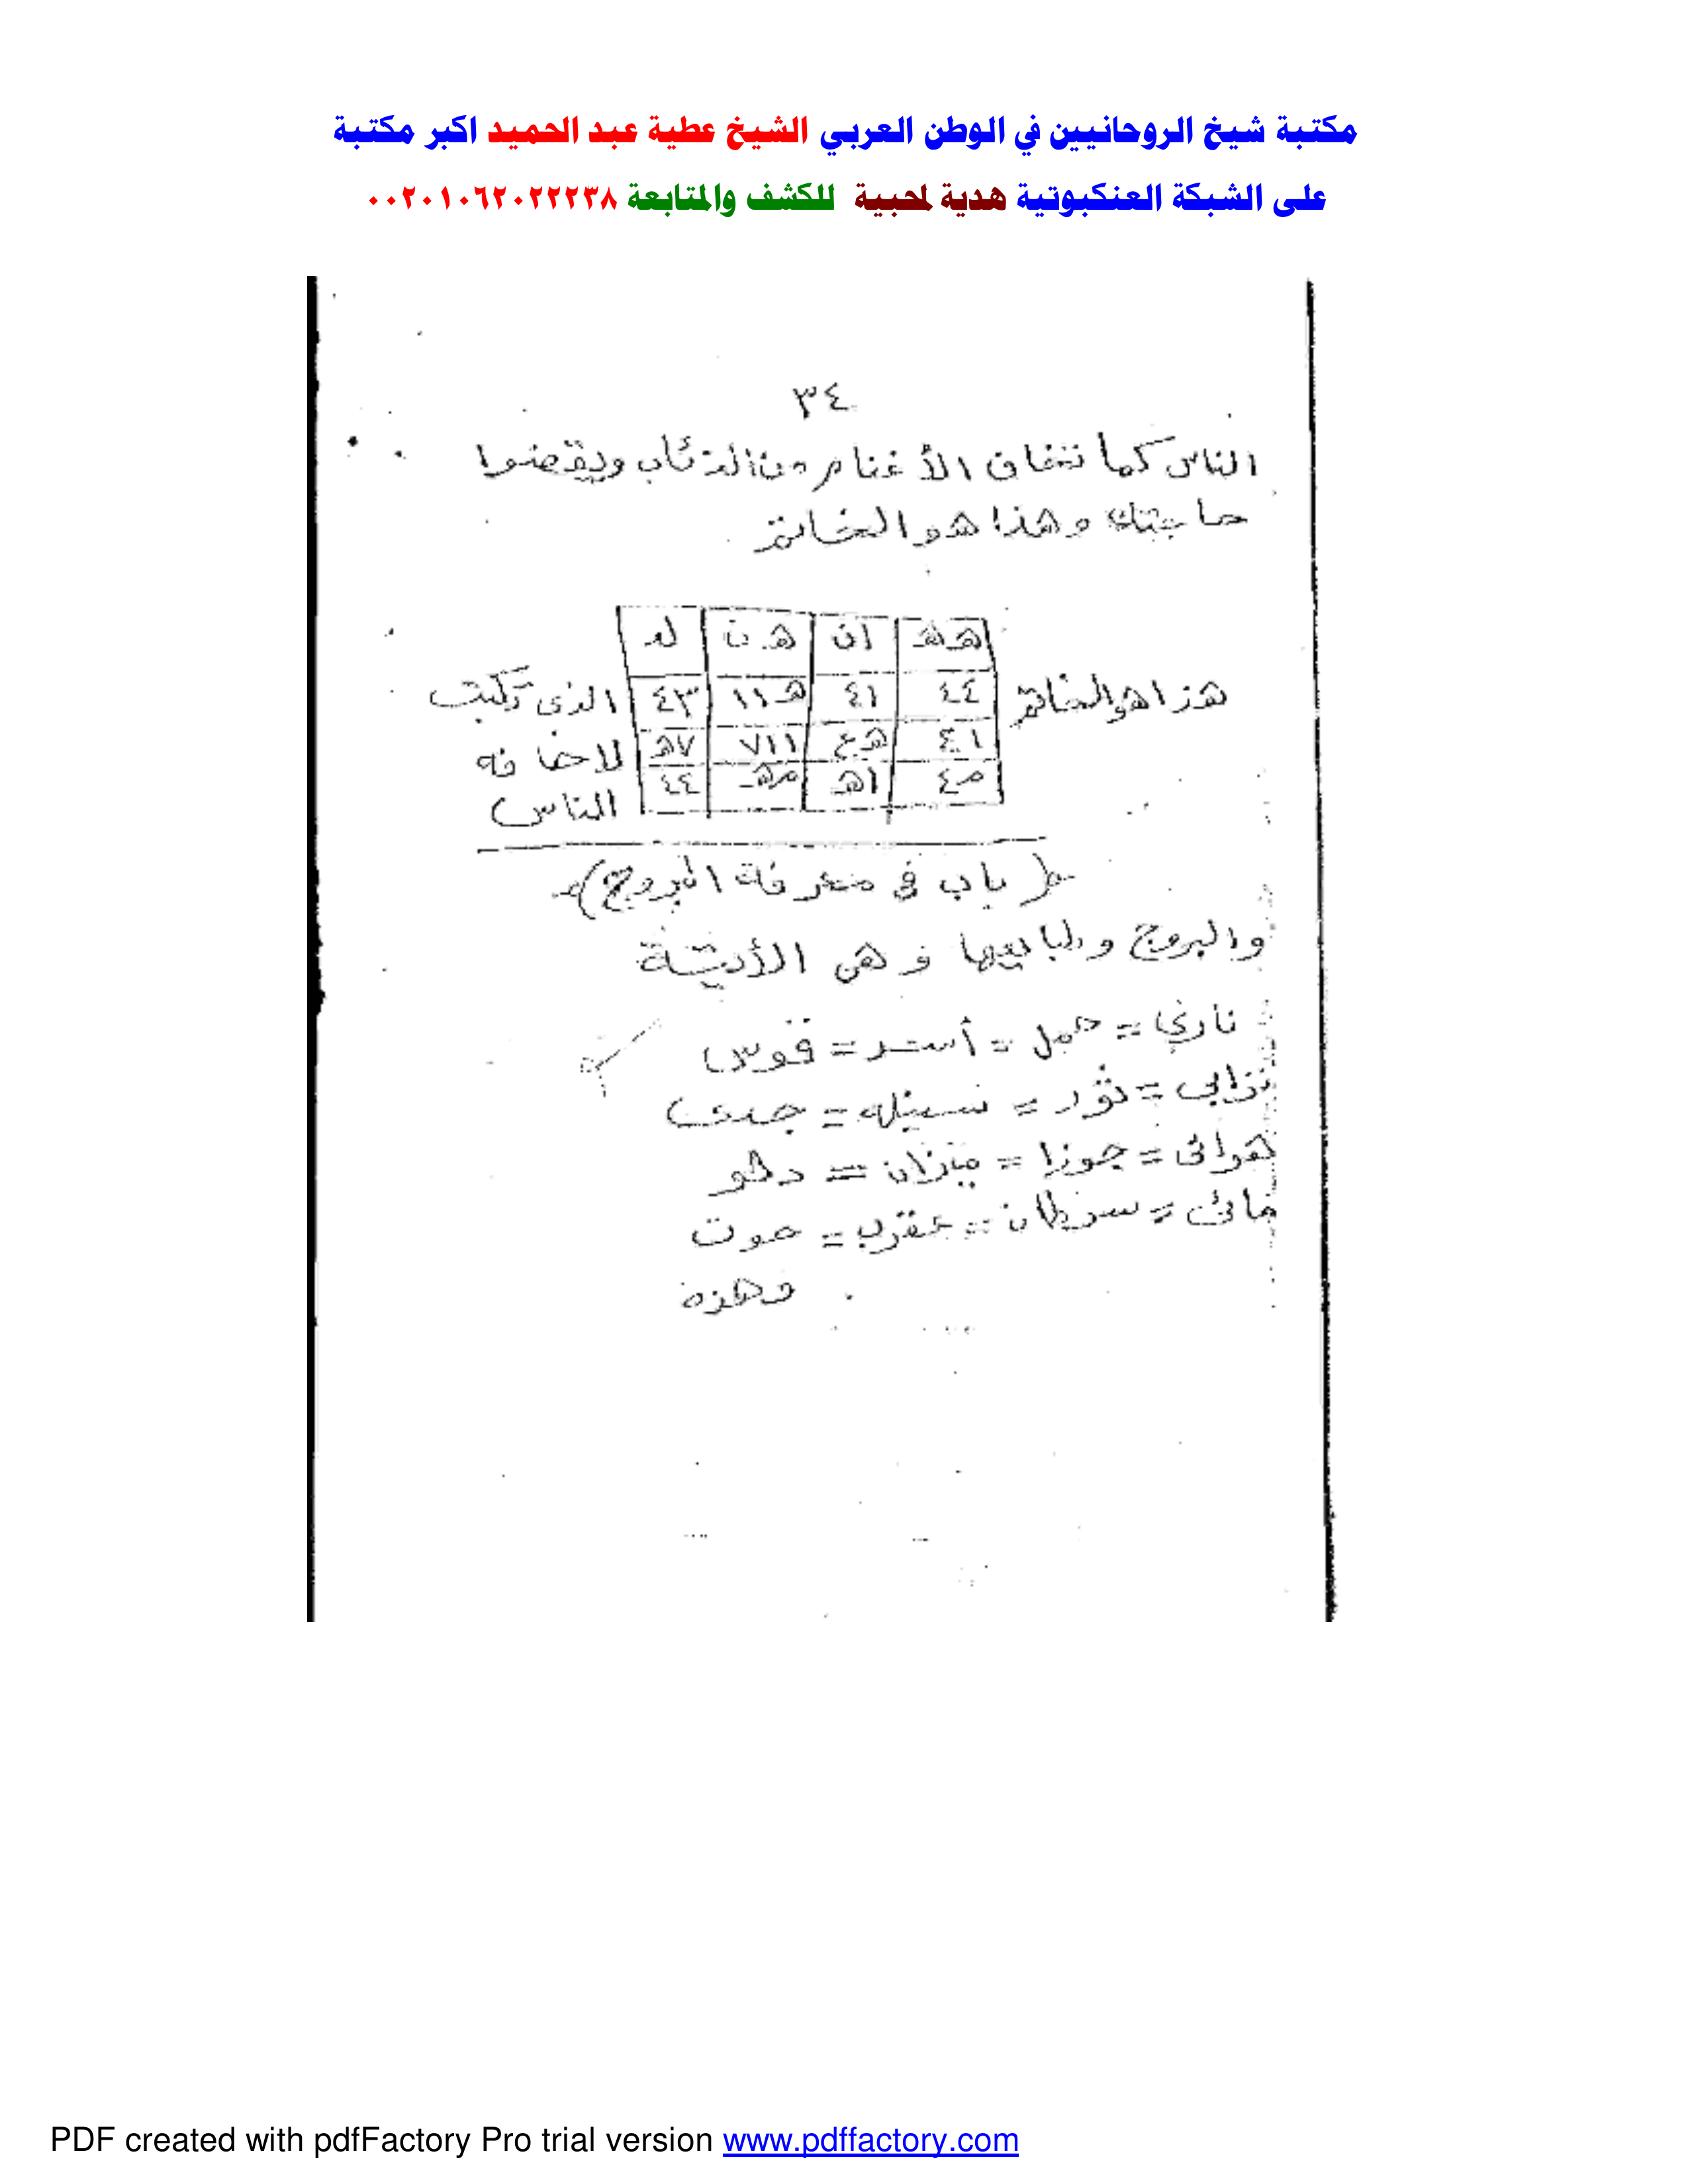 مكتبة شيخ الروحانيين في الوطن العربي الشيخ عطية عبد الحميد اكبر مكتبة
على الشبكة العنكبوتية هدية لمحبية للكشف والمتابعة ٠٠٢٠١٠٦٢٠٢٢٢٣٨
٣٤
الناس كما تخاف الأغنام من الذئاب ويقضوا
حاجتك وهذا هو الخاتم
هـهـ ان هـ ن لد
٤٤ ٤١ هـ١١ ٤٣
٤١ هـع ٧١١ ٧هـ
م٤ اهـ مهـ ٤٤
هذا هو الخاتم الذى تكتب
لاخافه
الناس
(باب في معرفة البروج)
والبروج وطبايعها وهى الأتية
ناري = حمل = أسد = قوس
ترابى = ثور = سنبله = جدى
هوائى = جوزا = ميزان = دلو
مائى = سرطان = عقرب = حوت
وهذه
PDF created with pdfFactory Pro trial version www.pdffactory.com